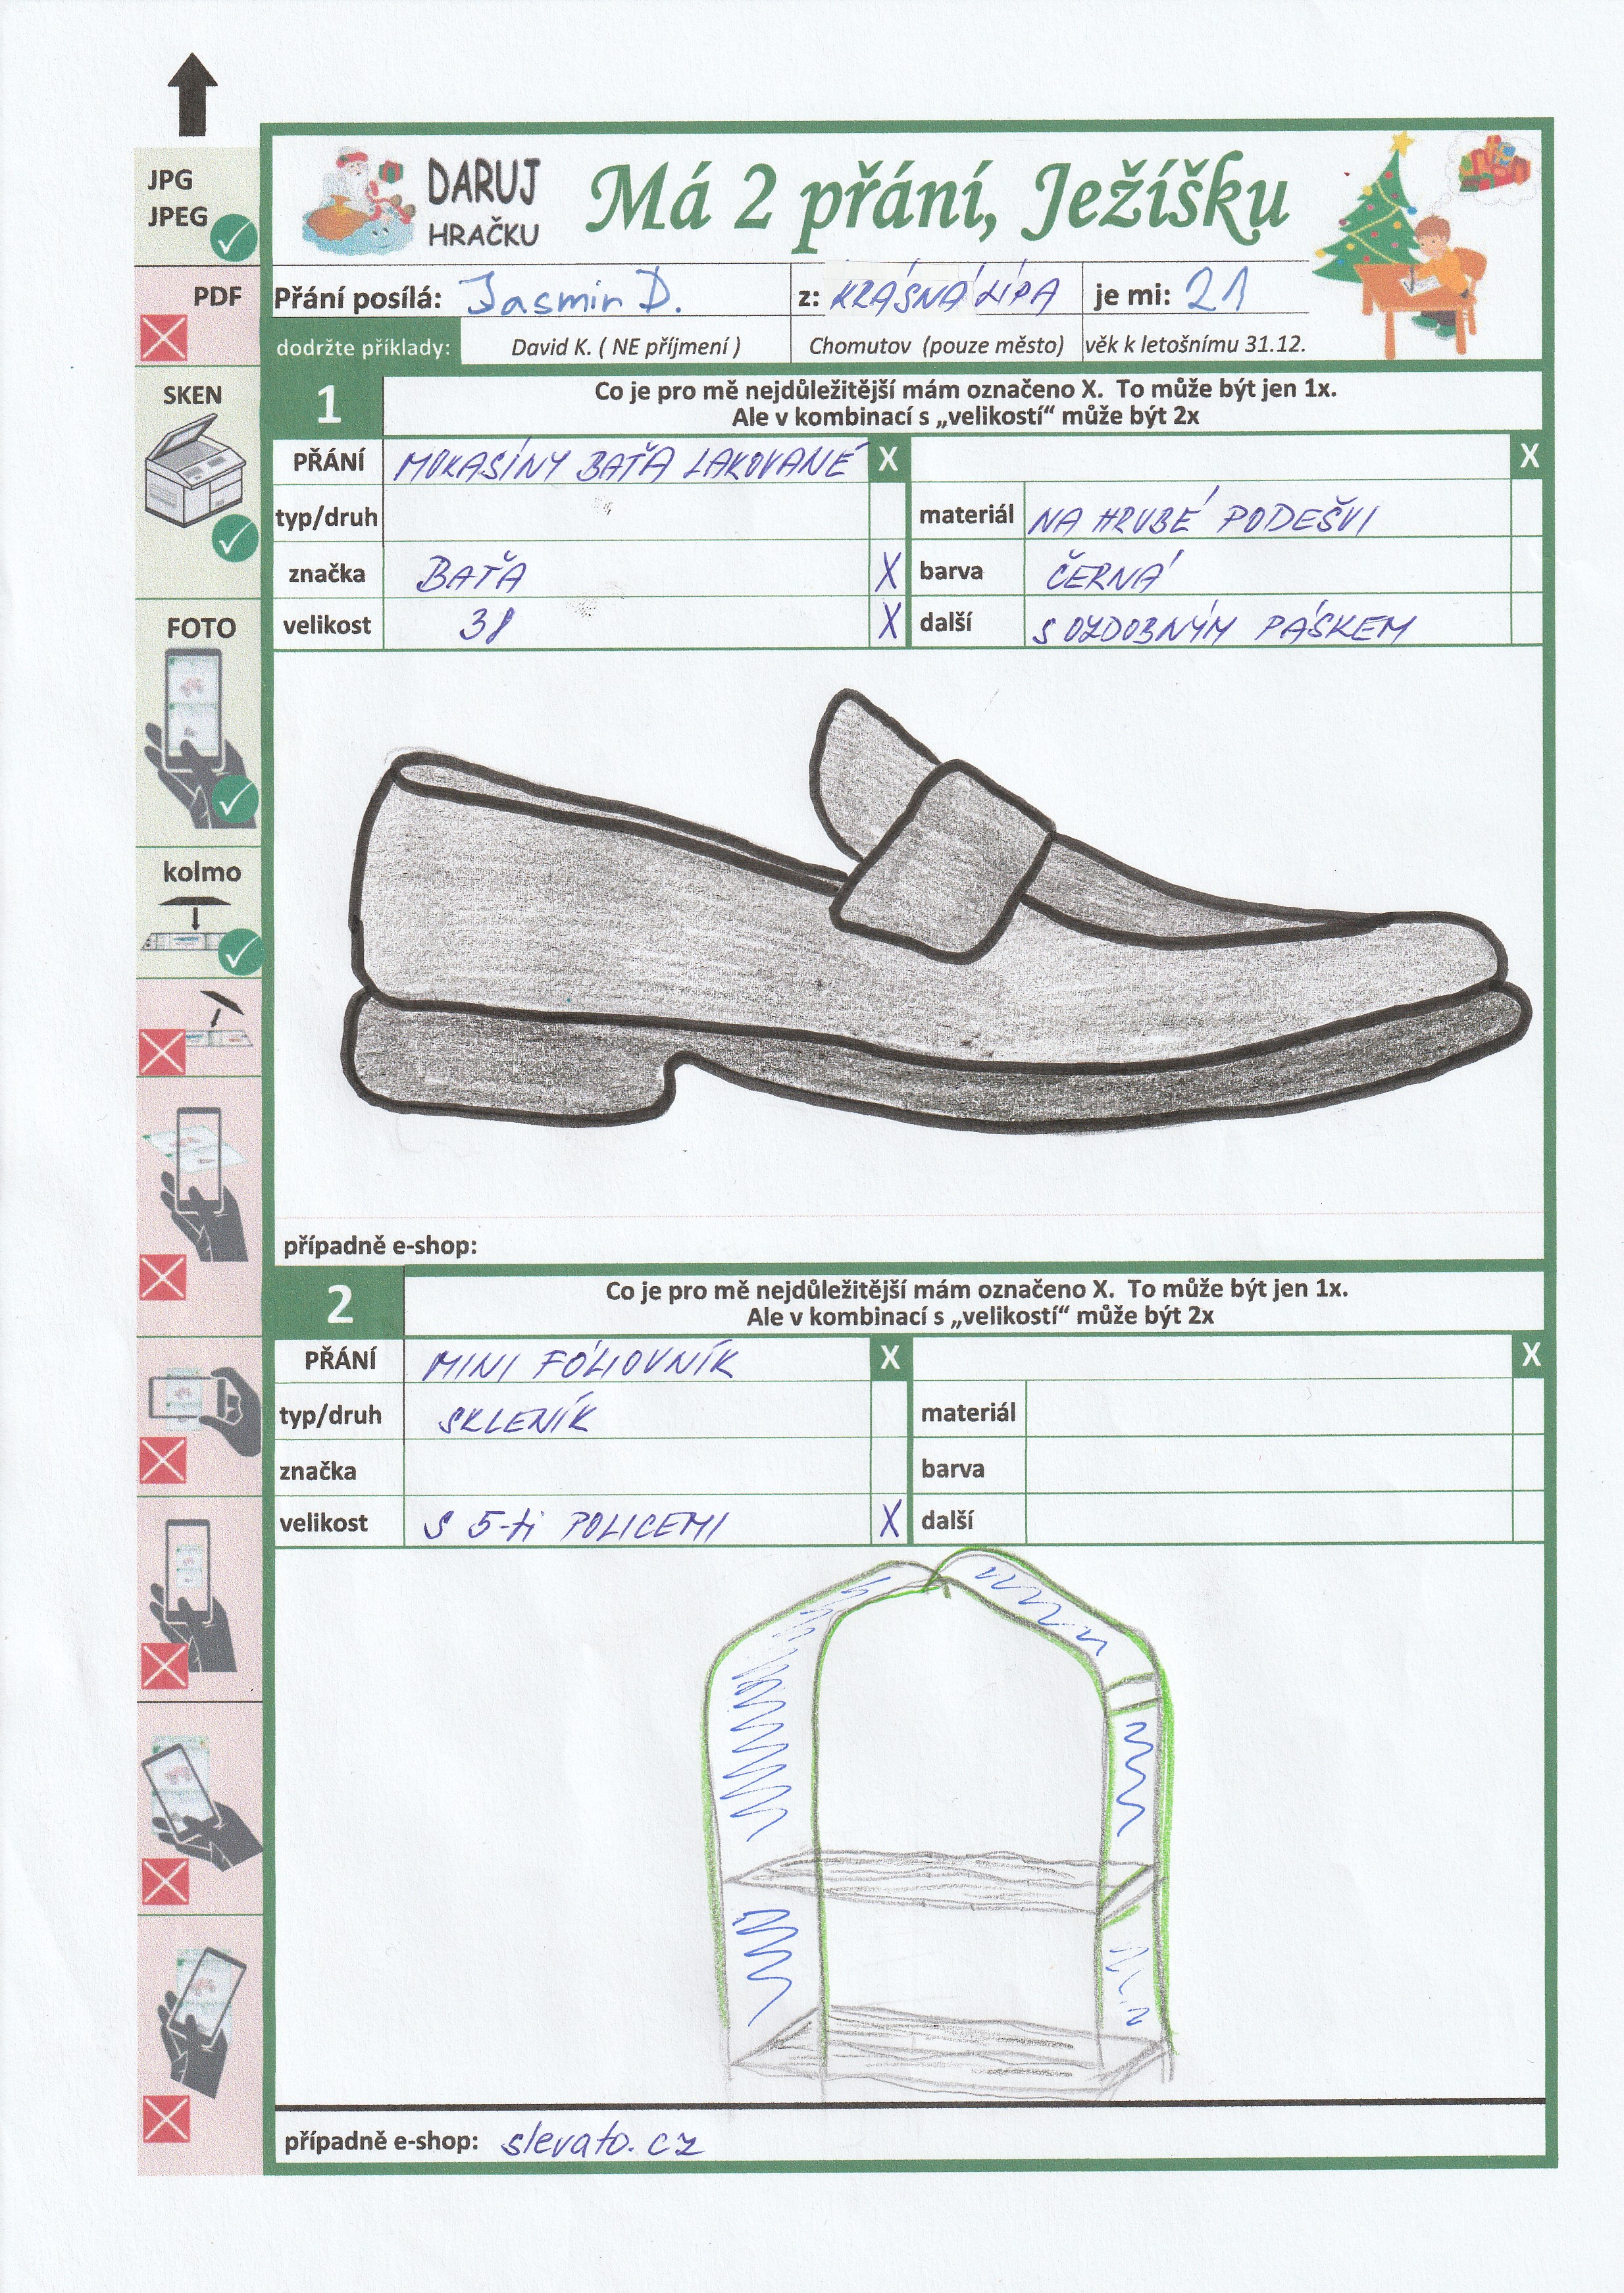 JPG
JPEG
PDF
SKEN
FOTO
kolmo
DARUJ
HRAČKU
Má 2 přání, Ježíšku
Přání posílá: Jasmin D. z: KRÁSNÁ LÍPA je mi: 21
dodržte příklady: David K. ( NE příjmení ) Chomutov (pouze město) věk k letošnímu 31.12.
1 Co je pro mě nejdůležitější mám označeno X. To může být jen 1x.
Ale v kombinací s „velikostí“ může být 2x
PŘÁNÍ MOKASÍNY BAŤA LAKOVANÉ X X
typ/druh materiál NA HRUBÉ PODEŠVI
značka BAŤA X barva ČERNÁ
velikost 38 X další S OZDOBNÝM PÁSKEM
případně e-shop:
2 Co je pro mě nejdůležitější mám označeno X. To může být jen 1x.
Ale v kombinací s „velikostí“ může být 2x
PŘÁNÍ MINI FÓLIOVNÍK X X
typ/druh SKLENÍK materiál
značka barva
velikost S 5-ti POLICEMI X další
případně e-shop: slevato.cz